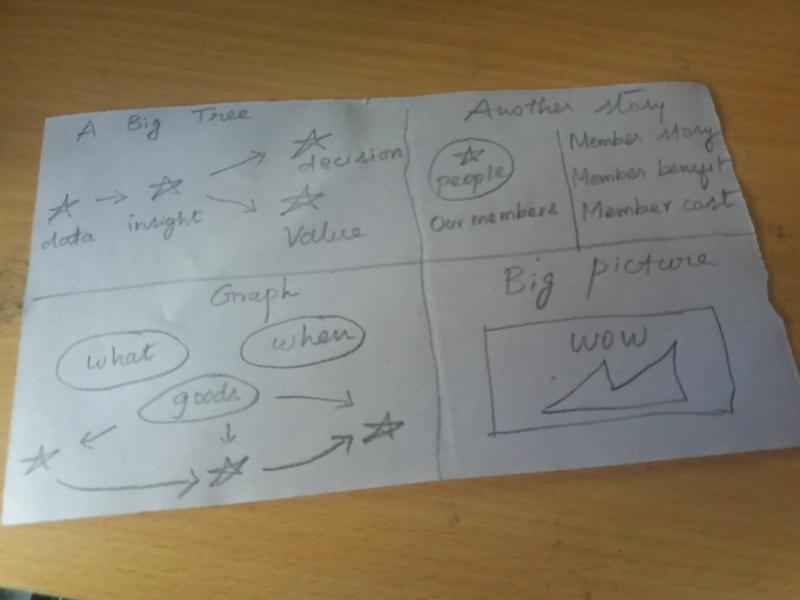 A Big Tree
data
insight
decision
Value
Another story
people
Our members
Member story
Member benefit
Member cast
Graph
what
when
goods
Big picture
WOW